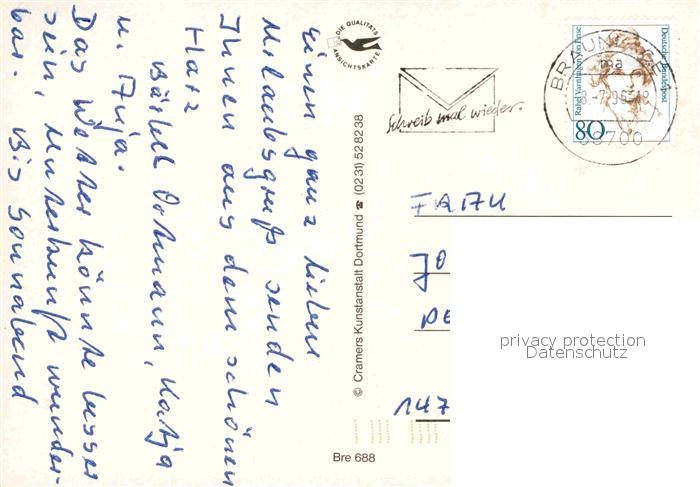 Einen ganz lieben
Urlaubsgruß senden
Ihnen aus dem schönen
Harz
Bärbel Ortmann, Katja
u. Anja.
Das Wetter könnte besser
sein, Unterkunft wunder-
bar. Bis Sonnabend
DIE QUALITÄTS
ANSICHTSKARTE
© Cramers Kunstanstalt Dortmund ☎ (0231) 52 82 38
Bre 688
Schreib mal wieder.
Deutsche Bundespost
Rahel Varnhagen von Ense
80
38700
FRAU
JO
DE
147
privacy protection
Datenschutz